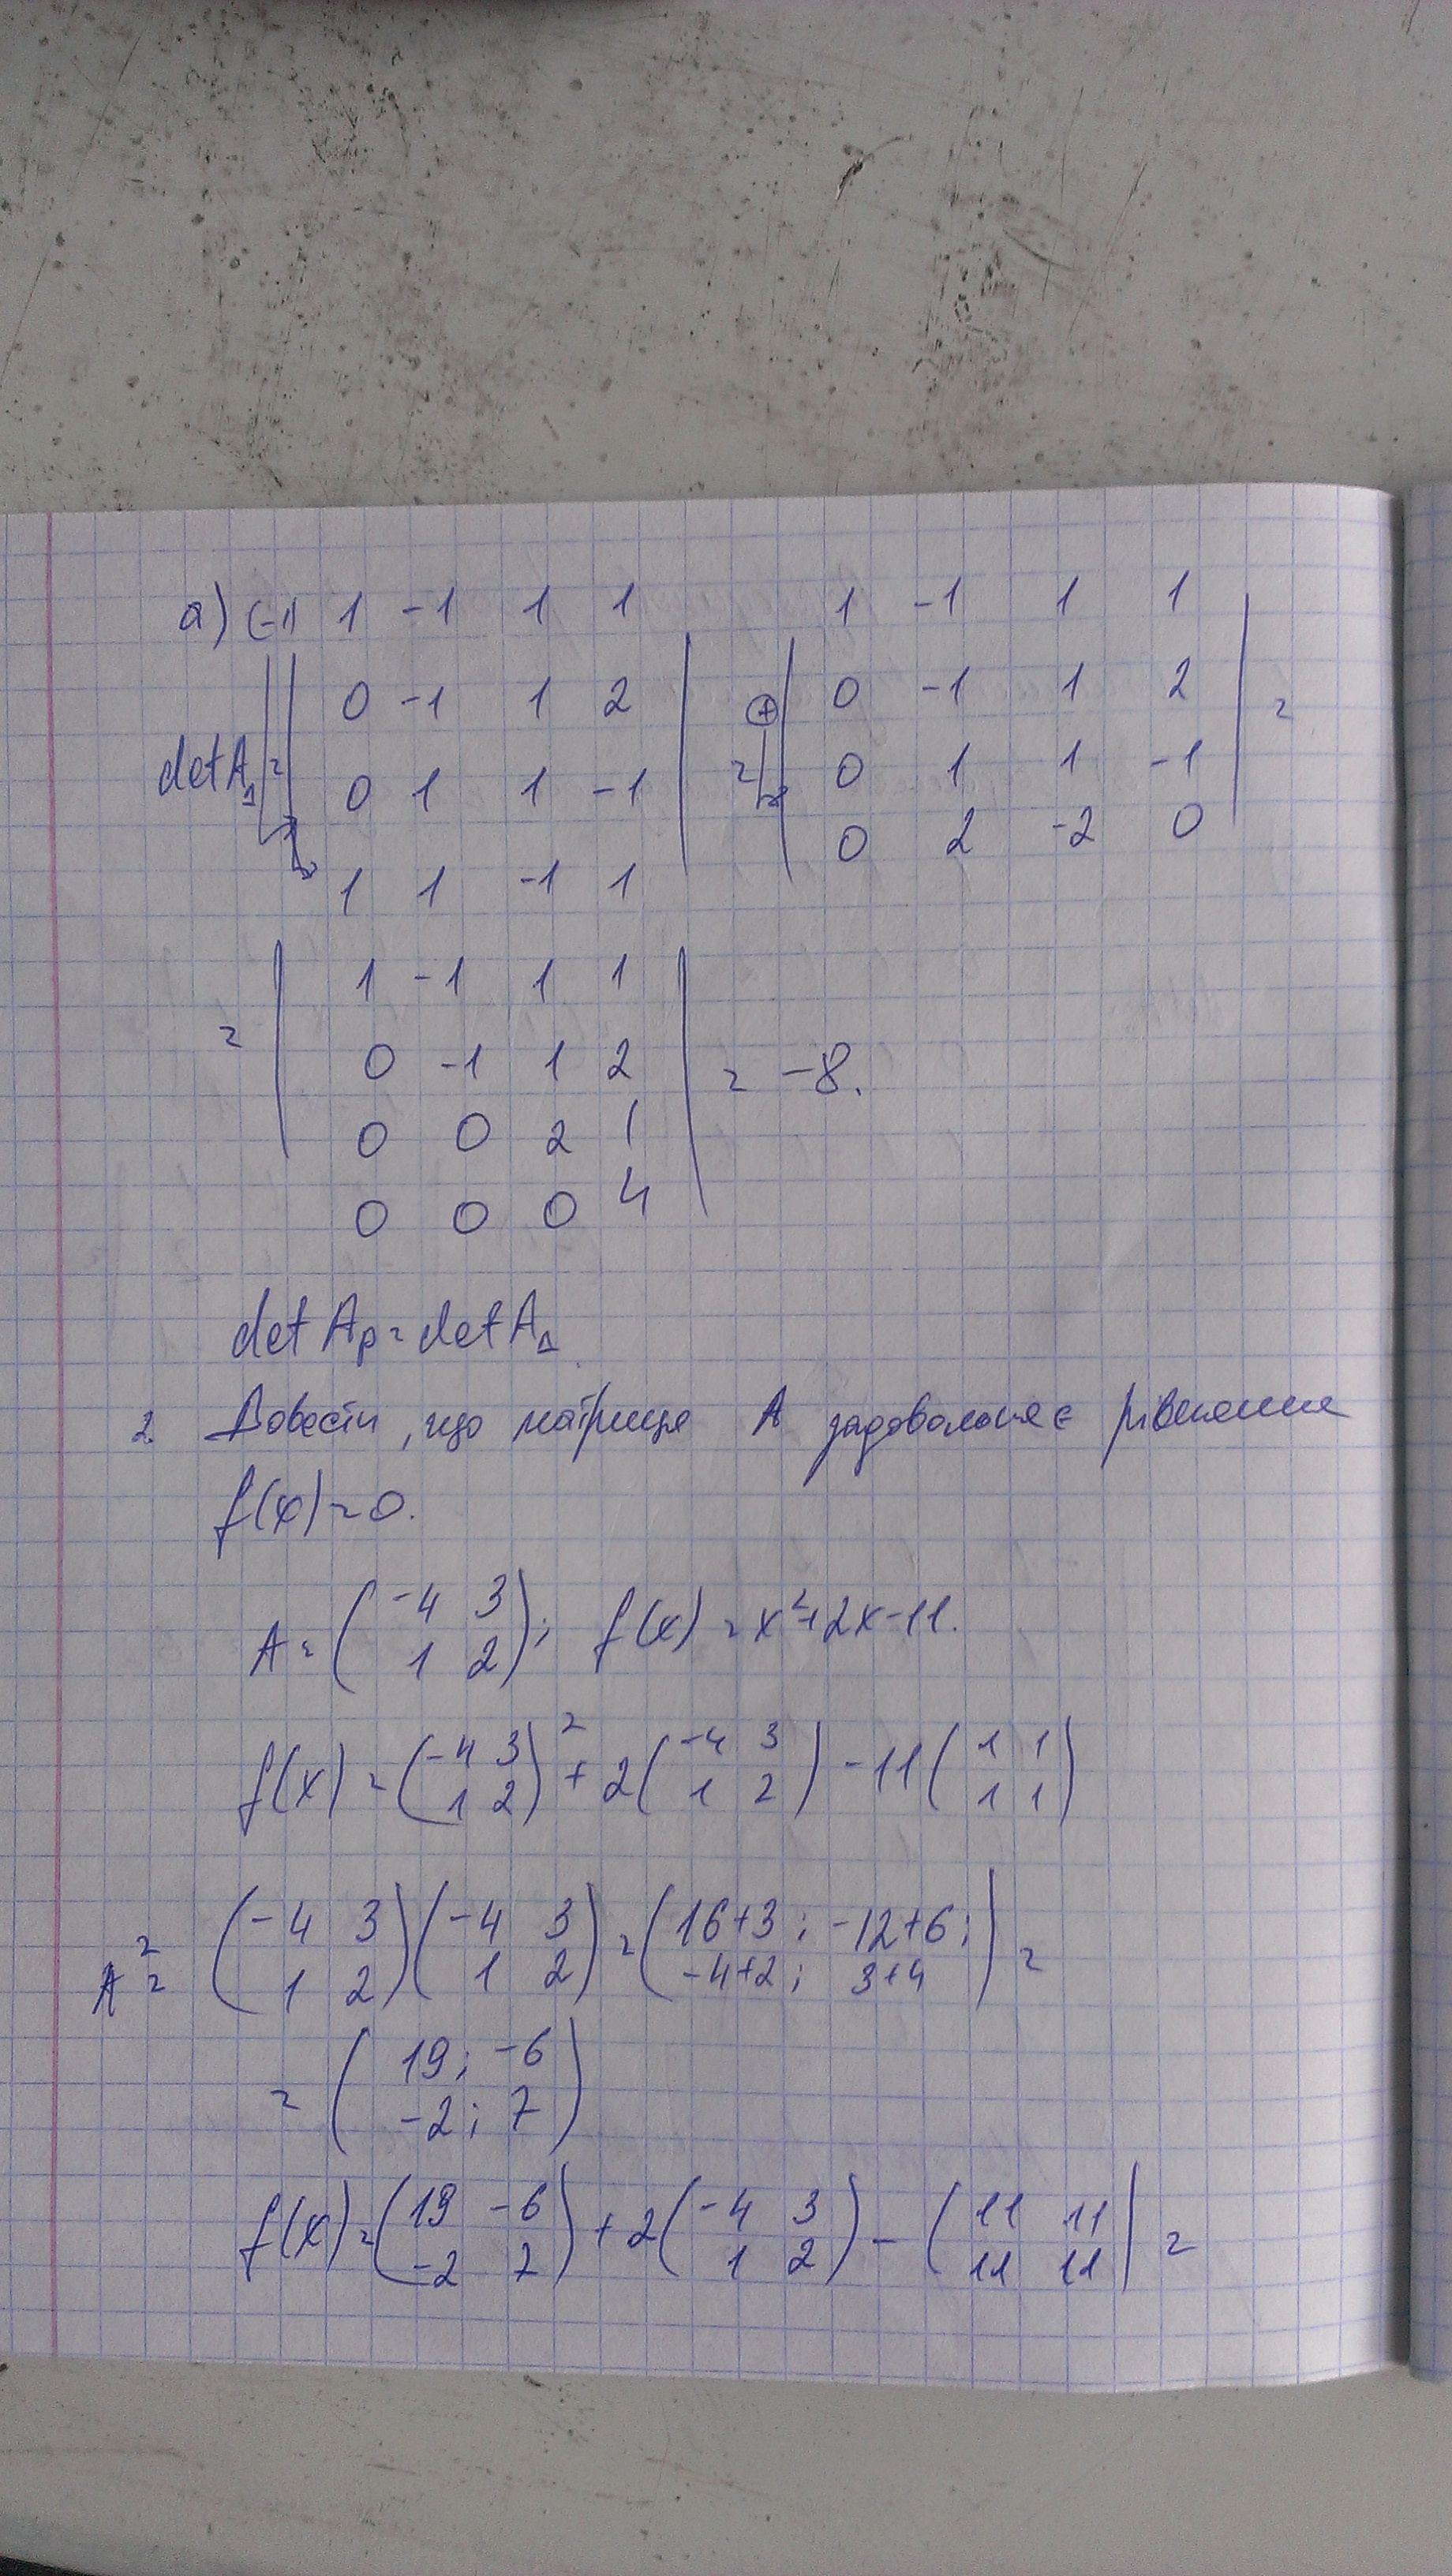 а) (-1) 1 -1 1 1      1 -1 1 1
0 -1 1 2      0 -1 1 2 =
det A₁ = 0 1 1 -1 = 0 1 1 -1
1 1 -1 1      0 2 -2 0
1 -1 1 1
= 0 -1 1 2 = -8.
0 0 2 1
0 0 0 4
det Aр = det A₁
2. Довести, що матриця А задовольняє рівняння
f(x) = 0.
A = (-4 3; 1 2); f(x) = x² + 2x - 11.
f(x) = (-4 3; 1 2)² + 2(-4 3; 1 2) - 11(1 1; 1 1)
A² = (-4 3; 1 2)(-4 3; 1 2) = (16+3; -12+6; -4+2; 3+4) =
= (19; -6; -2; 7)
f(x) = (19 -6; -2 7) + 2(-4 3; 1 2) - (11 11; 11 11) =